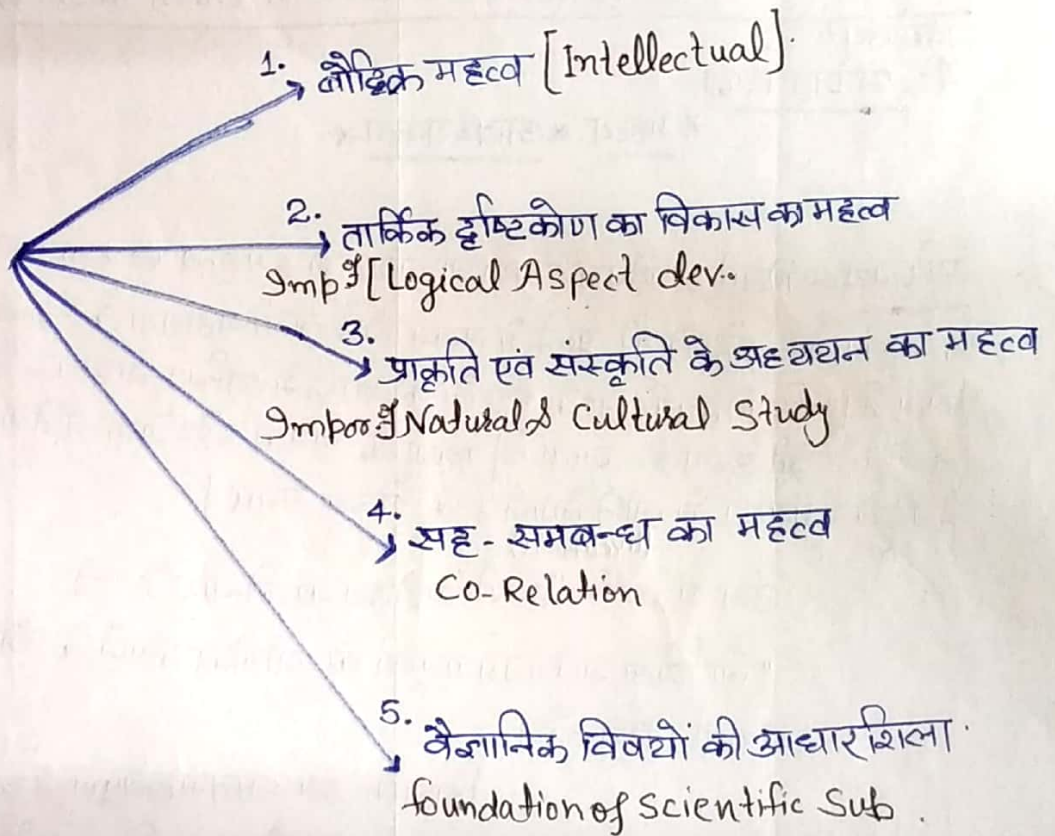 1. बौद्धिक महत्व [Intellectual].
2. तार्किक दृष्टिकोण का विकास का महत्व
Imp of [Logical Aspect dev..
3. प्राकृति एवं संस्कृति के अध्ययन का महत्व
Impor of Natural & Cultural Study
4. सह-समबन्ध का महत्व
Co-Relation
5. वैज्ञानिक विषयों की आधारशिला.
foundation of Scientific Sub.